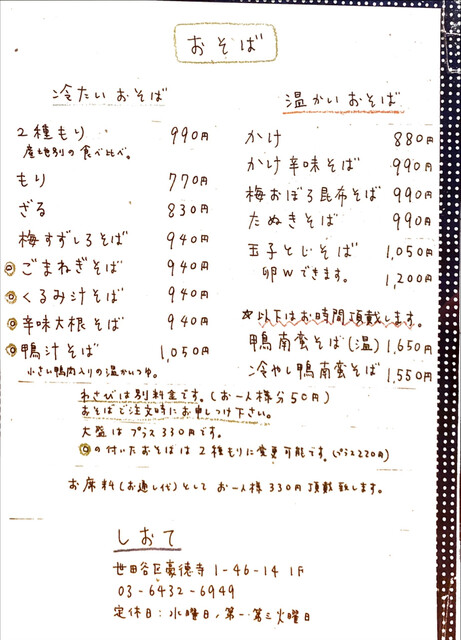 おそば
冷たいおそば
2種もり 990円
産地別の食べ比べ。
もり 770円
ざる 830円
梅すずしろそば 940円
◎ごまねぎそば 940円
◎くるみ汁そば 940円
◎辛味大根そば 940円
◎鴨汁そば 1,050円
小さい鴨肉入りの温かいつゆ。
温かいおそば
かけ 880円
かけ辛味そば 990円
梅おぼろ昆布そば 990円
たぬきそば 990円
玉子とじそば 1,050円
卵Wできます。 1,200円
※以下はお時間頂戴します。
鴨南蛮そば(温) 1,650円
冷やし鴨南蛮そば 1,550円
わさびは別料金です。(お一人様分50円)
おそばご注文時にお申しつけ下さい。
大盛はプラス330円です。
◎の付いたおそばは2種もりに変更可能です。(プラス220円)
お席料(お通し代)としてお一人様330円頂戴致します。
しおて
世田谷区豪徳寺1-46-14 1F
03-6432-6949
定休日:水曜日,第一・第三火曜日